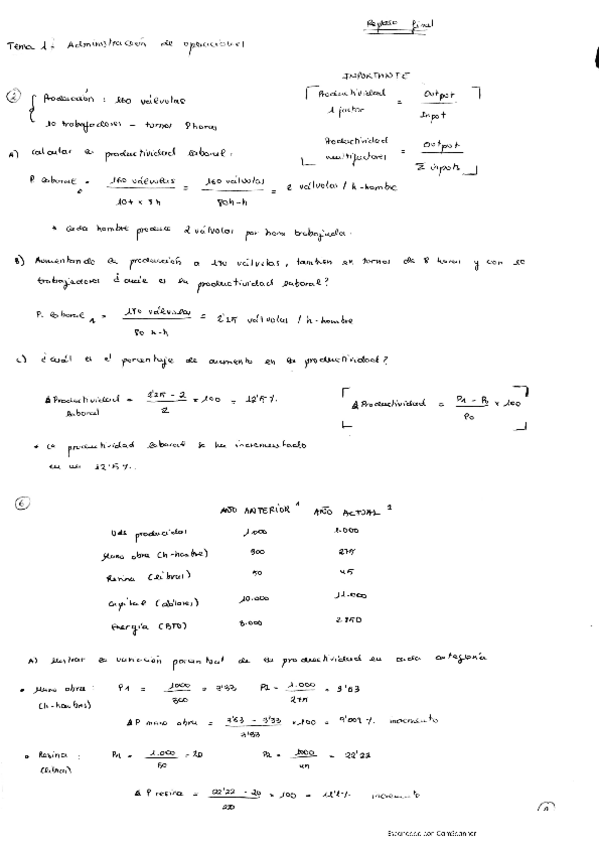 Repaso final
Tema 1: Administración de operaciones
IMPORTANTE
Productividad 1 factor = Output / Input
Productividad multifactores = Output / Σ inputs
② Producción: 160 válvulas
10 trabajadores - turnos 8 horas
A) Calcular la productividad laboral:
P. laboral₀ = 160 válvulas / 10t x 8h = 160 válvulas / 80h-h = 2 válvulas / h-hombre
* Cada hombre produce 2 válvulas por hora trabajada.
B) Aumentando la producción a 180 válvulas, también en turnos de 8 horas y con 10
trabajadores ¿cuál es la productividad laboral?
P. laboral₁ = 180 válvulas / 80 h-h = 2'25 válvulas / h-hombre
C) ¿Cuál es el porcentaje de aumento en la productividad?
Δ Productividad laboral = 2'25 - 2 / 2 x 100 = 12'5%
Δ Productividad = P1 - P0 / P0 x 100
* La productividad laboral se ha incrementado
en un 12'5%.
⑥
AÑO ANTERIOR 1 AÑO ACTUAL 2
Uds producidas 1.000 1.000
Mano obra (h-hombre) 300 275
Resina (libras) 50 45
Capital (dólares) 10.000 11.000
Energía (BTU) 3.000 2.850
A) Mostrar la variación porcentual de la productividad en cada categoría
• Mano obra: (h-hombres) P1 = 1000 / 300 = 3'33 P2 = 1.000 / 275 = 3'63
ΔP mano obra = 3'63 - 3'33 / 3'33 x 100 = 9'009% incremento
• Resina: (libras) P1 = 1.000 / 50 = 20 P2 = 1000 / 45 = 22'22
Δ P resina = 22'22 - 20 / 20 x 100 = 11'1% incremento
Escaneado con CamScanner